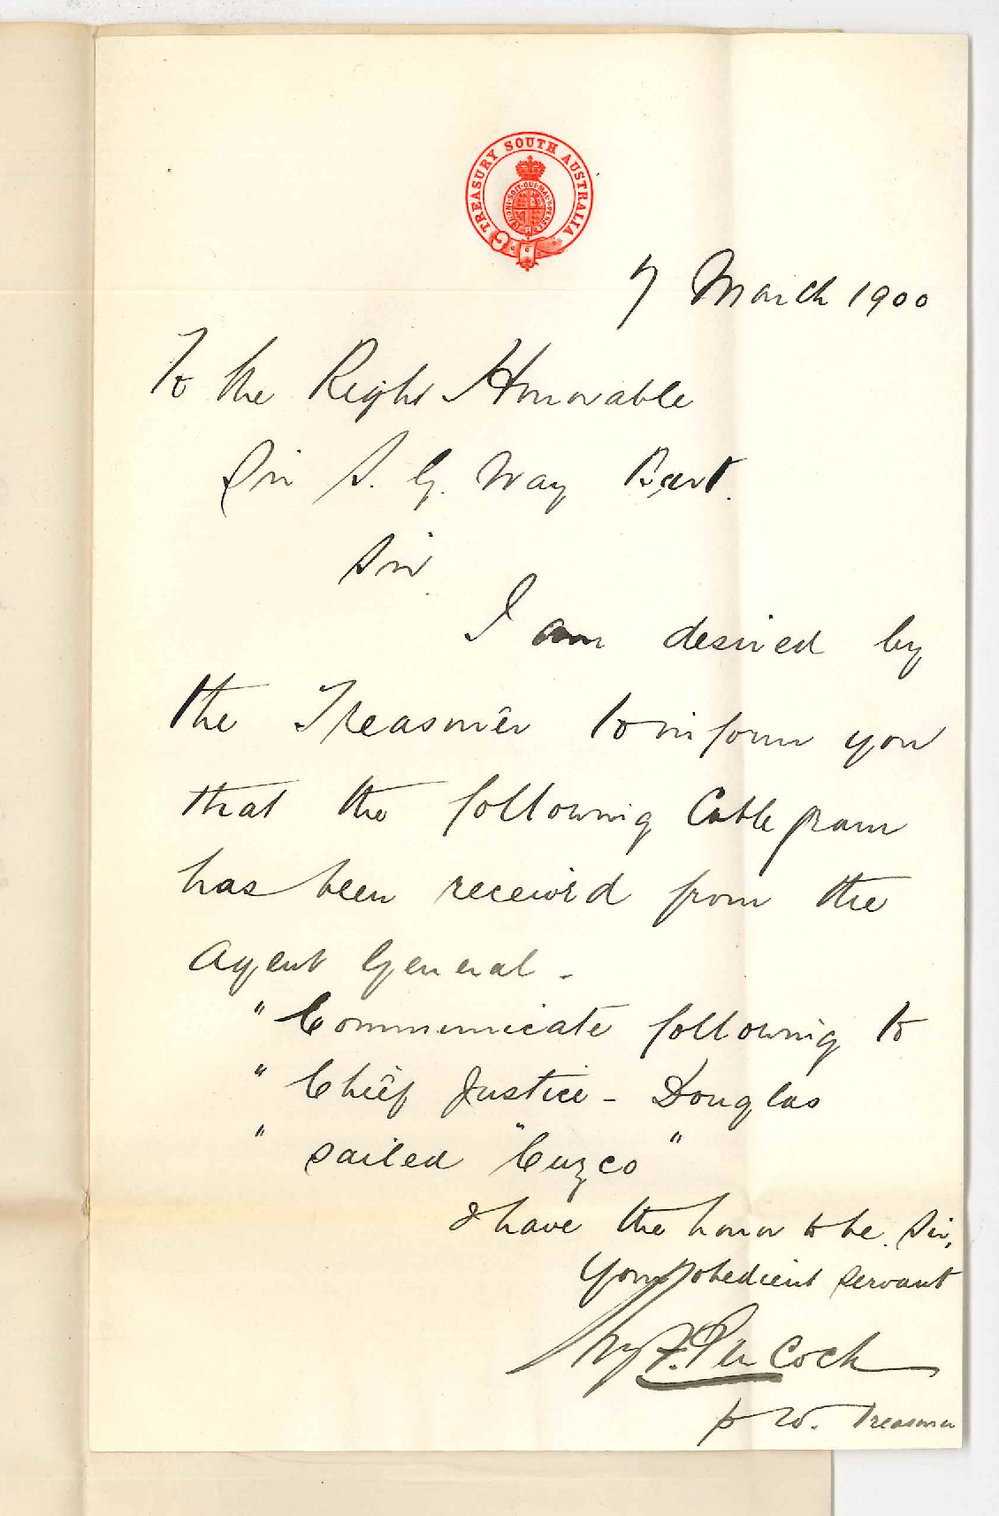 TREASURY SOUTH AUSTRALIA
HONI·SOIT·QUI·MAL·Y·PENSE
7 March 1900
To the Right Honorable
Sir S. G. Way Bart.
Sir.
I am desired by
the Treasurer to inform you
that the following Cablegram
has been received from the
Agent General -
"Communicate following to
" Chief Justice - Douglas
" sailed "Cuzco"
I have the honor to be. Sir,
Your obedient servant
F. Peacock
Treasurer